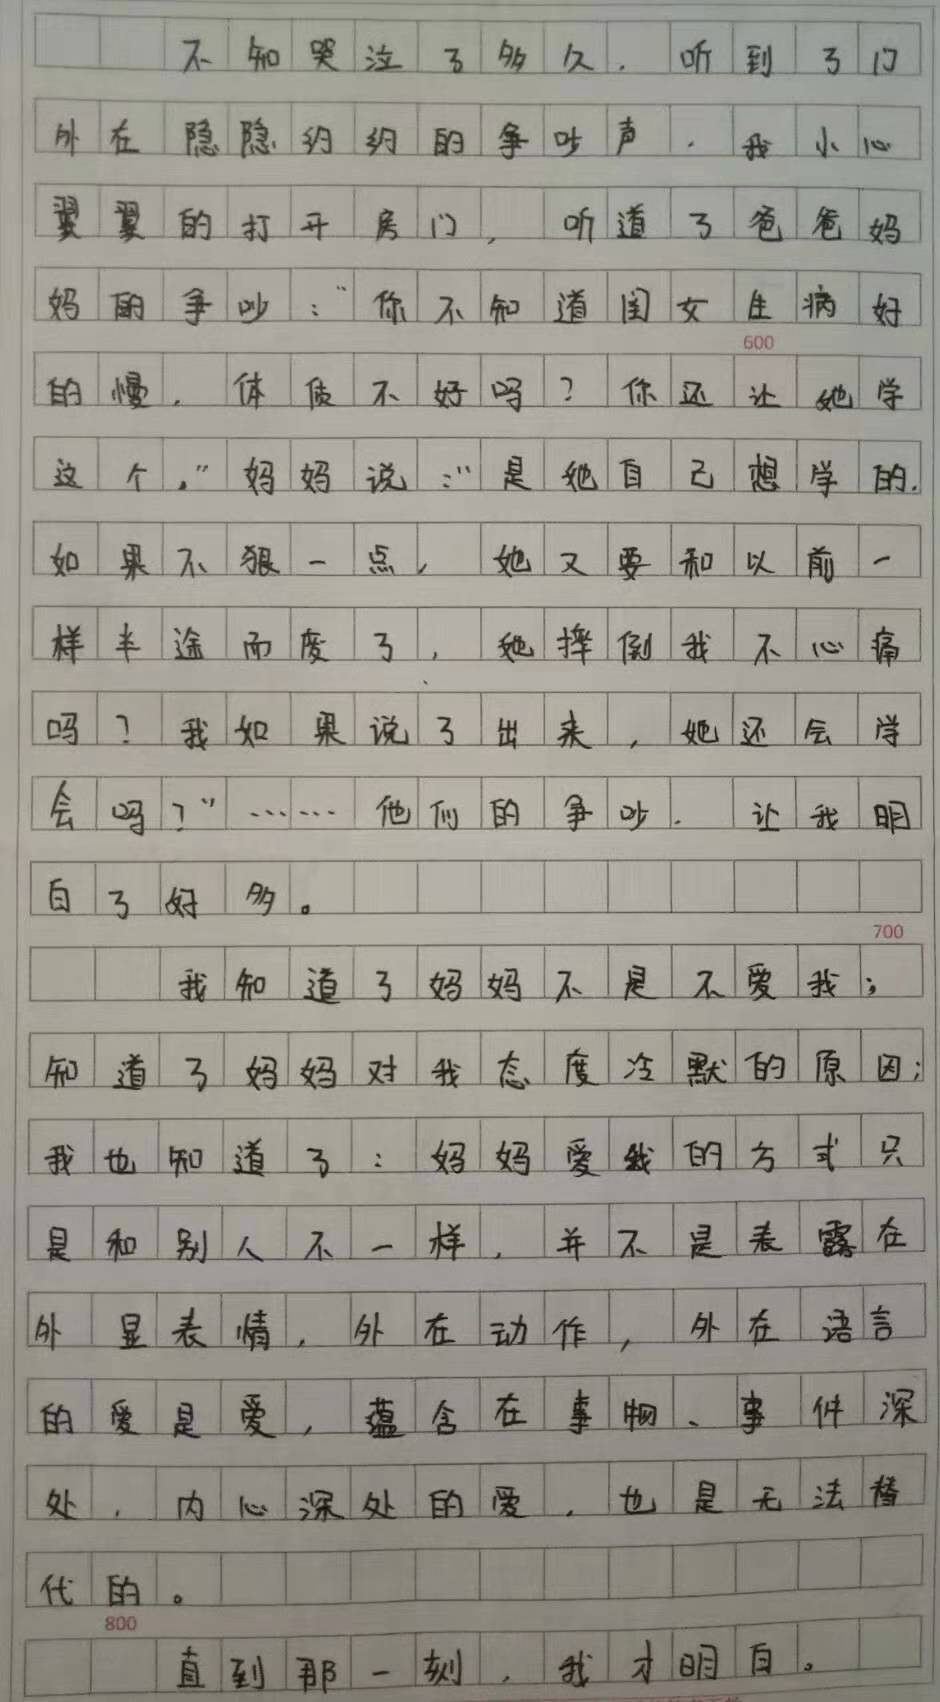 不知哭泣了多久，听到了门
外在隐隐约约的争吵声，我小心
翼翼的打开房门，听道了爸爸妈
妈的争吵：“你不知道闺女生病好
600
的慢，体质不好吗？你还让她学
这个。”妈妈说：“是她自己想学的.
如果不狠一点，她又要和以前一
样半途而废了，她摔倒我不心痛
吗？我如果说了出来，她还会学
会吗？”……他们的争吵，让我明
白了好多。
700
我知道了妈妈不是不爱我；
知道了妈妈对我态度冷默的原因；
我也知道了：妈妈爱我的方式只
是和别人不一样，并不是表露在
外显表情，外在动作，外在语言
的爱是爱，蕴含在事物、事件深
处，内心深处的爱，也是无法替
代的。
800
直到那一刻，我才明白。